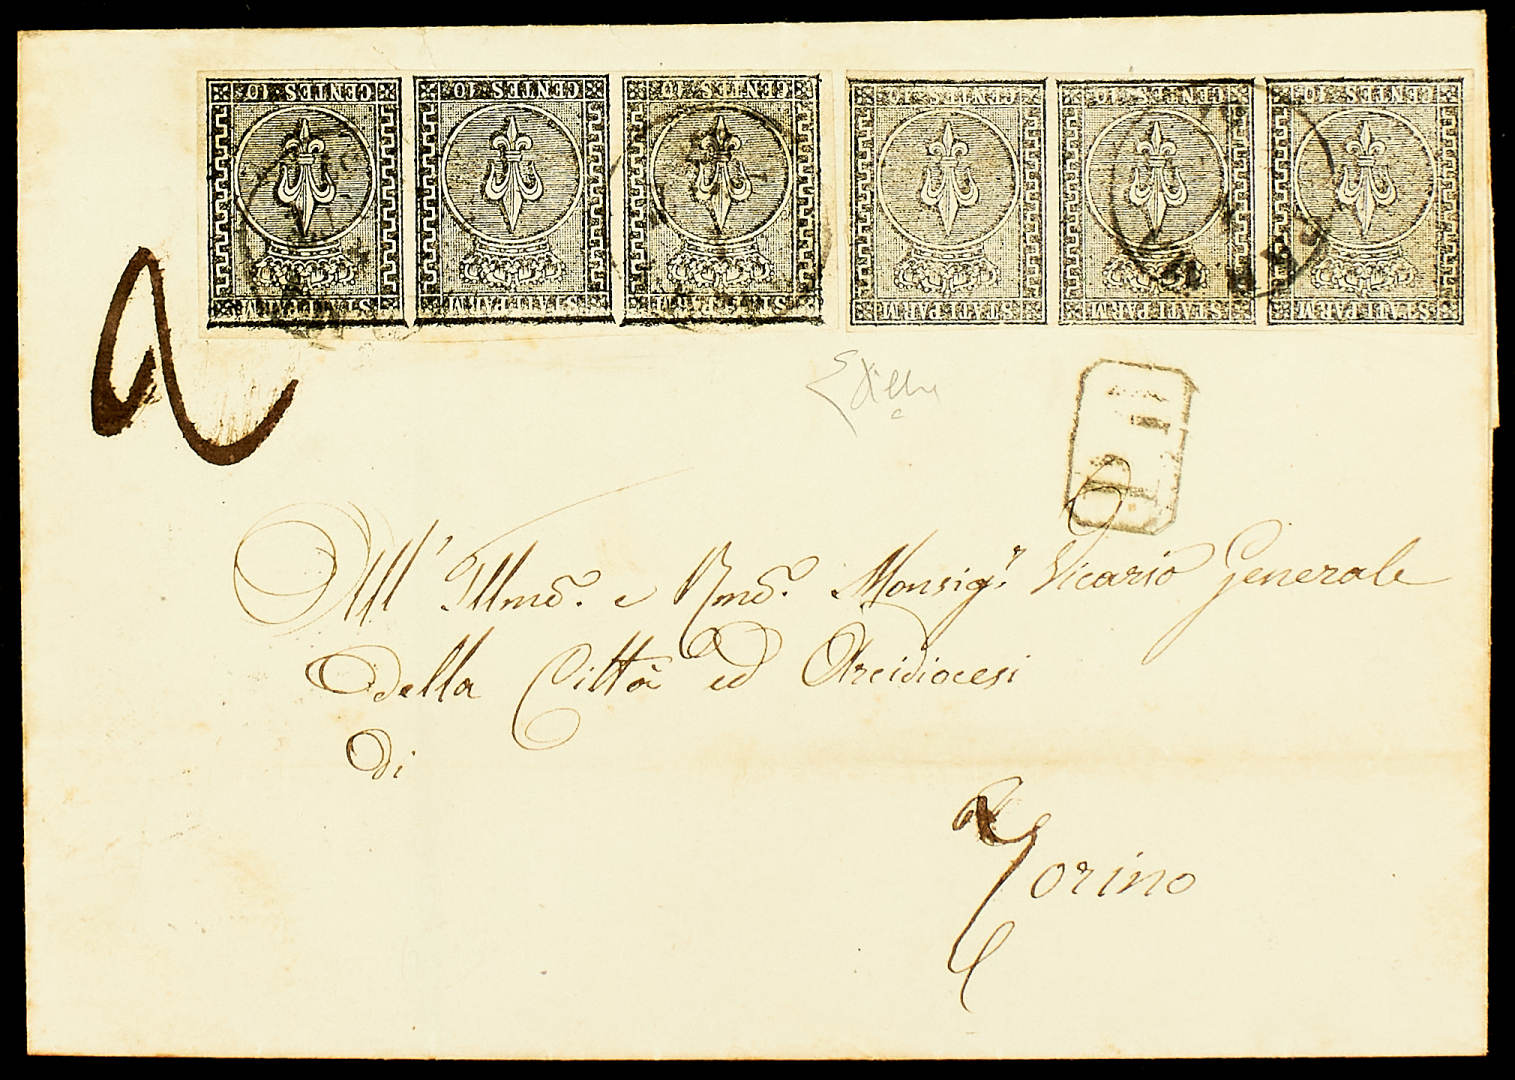 CENTES 10 CENTES 10 CENTES 10 CENTES 10 CENTES 10 CENTES 10
STATI PARM STATI PARM STATI PARM STATI PARM STATI PARM STATI PARM
P. D.
All' Illmo. e Rmo. Monsigr. Vicario Generale
della Città ed Arcidiocesi
di
Torino